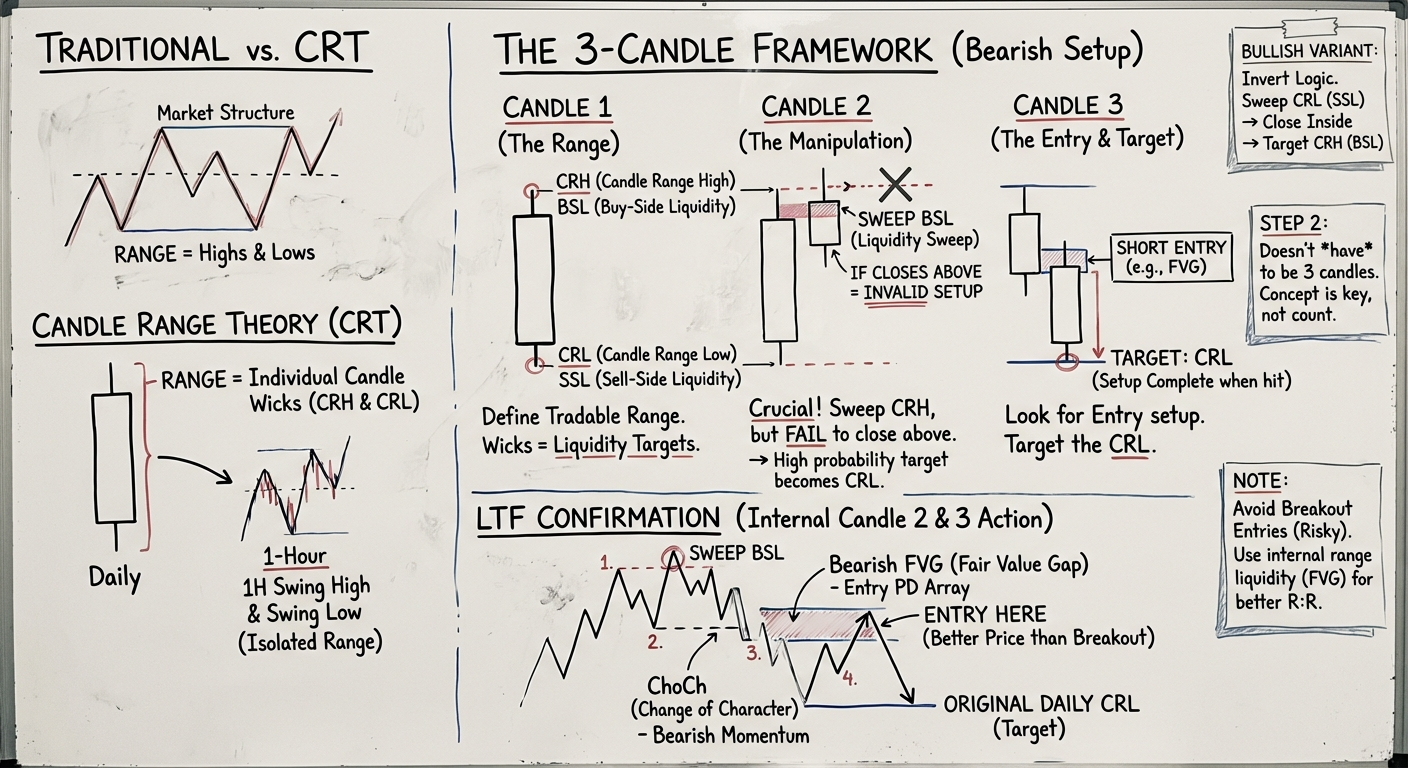 TRADITIONAL vs. CRT
Market Structure
RANGE = Highs & Lows
CANDLE RANGE THEORY (CRT)
RANGE = Individual Candle
Wicks (CRH & CRL)
Daily
1-Hour
1H Swing High
& Swing Low
(Isolated Range)
THE 3-CANDLE FRAMEWORK (Bearish Setup)
CANDLE 1
(The Range)
CRH (Candle Range High)
BSL (Buy-Side Liquidity)
CRL (Candle Range Low)
SSL (Sell-Side Liquidity)
Define Tradable Range.
Wicks = Liquidity Targets.
CANDLE 2
(The Manipulation)
SWEEP BSL
(Liquidity Sweep)
IF CLOSES ABOVE
= INVALID SETUP
Crucial! Sweep CRH,
but FAIL to close above.
→ High probability target
becomes CRL.
CANDLE 3
(The Entry & Target)
SHORT ENTRY
(e.g., FVG)
TARGET: CRL
(Setup Complete when hit)
Look for Entry setup.
Target the CRL.
LTF CONFIRMATION (Internal Candle 2 & 3 Action)
1.
SWEEP BSL
2.
3.
4.
ChoCh
(Change of Character)
- Bearish Momentum
Bearish FVG (Fair Value Gap)
- Entry PD Array
ENTRY HERE
(Better Price than Breakout)
ORIGINAL DAILY CRL
(Target)
BULLISH VARIANT:
Invert Logic.
Sweep CRL (SSL)
→ Close Inside
→ Target CRH (BSL)
STEP 2:
Doesn't *have*
to be 3 candles.
Concept is key,
not count.
NOTE:
Avoid Breakout
Entries (Risky).
Use internal range
liquidity (FVG) for
better R:R.